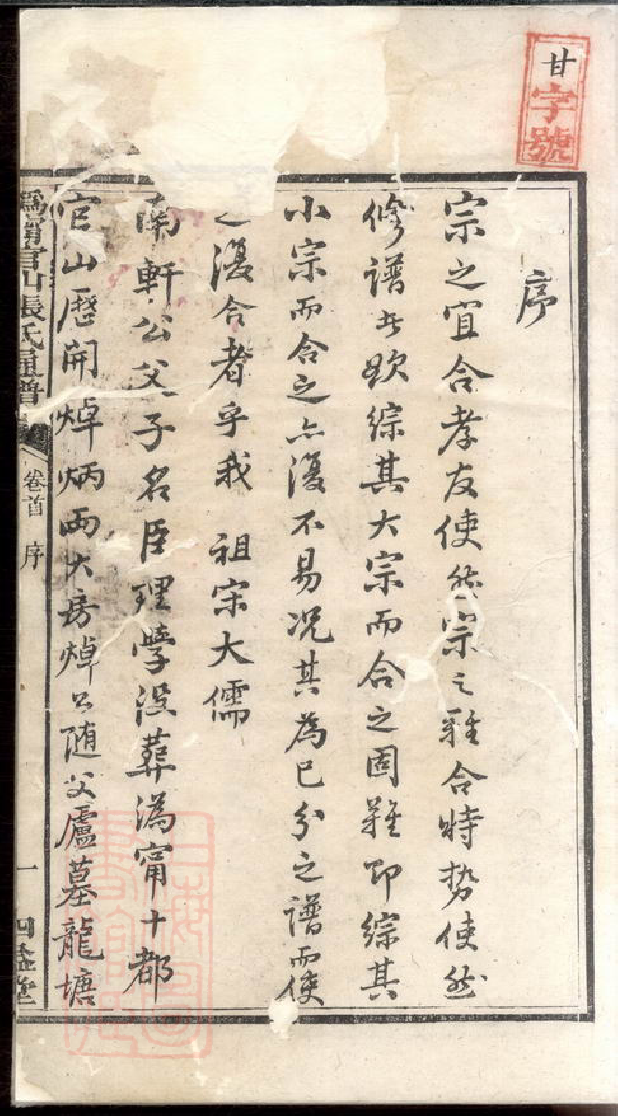 甘字號
序
宗之宜合孝友使然宗之難合時勢使然
修譜者欲綜其大宗而合之固難即綜其
小宗而合之亦復不易况其為已分之譜而使
之復合者乎我 祖宗大儒
南軒公父子名臣理學没葬溈甯十都
官山歷開焯炳兩大房焯公随父廬墓龍塘
官山張氏通譜 卷首 序 一 四益堂